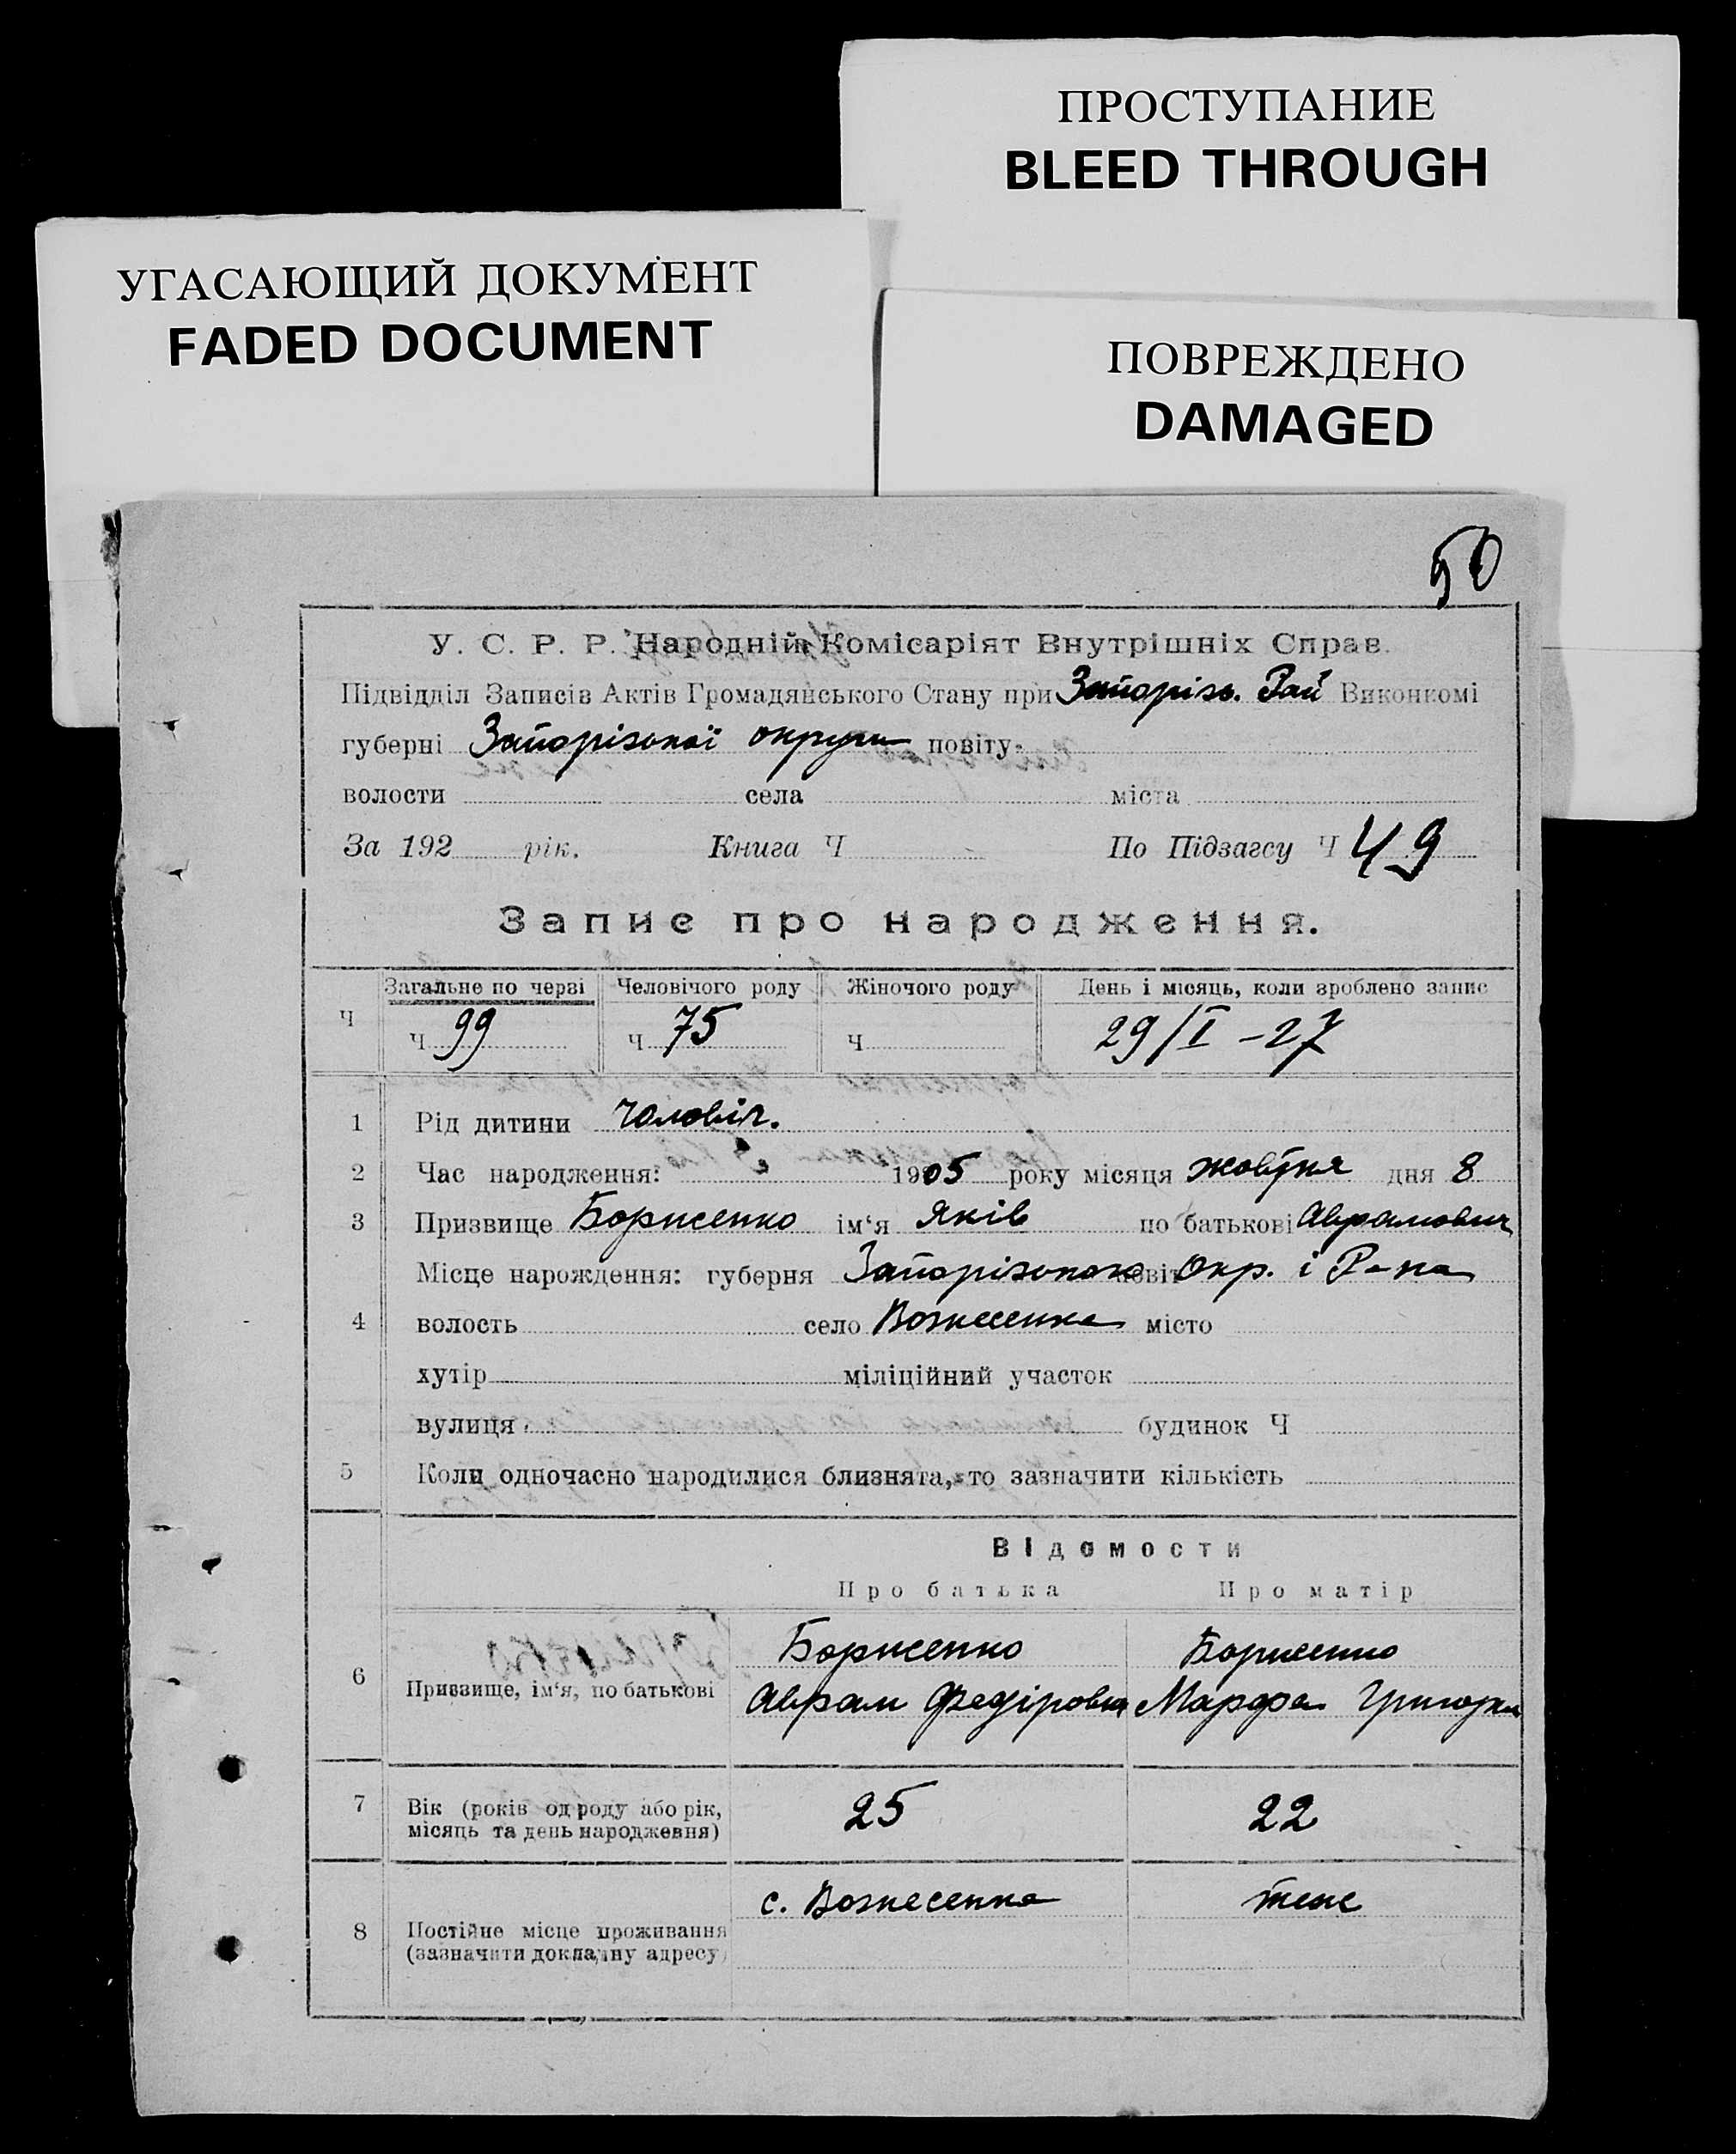 ПРОСТУПАНИЕ
BLEED THROUGH
УГАСАЮЩИЙ ДОКУМЕНТ
FADED DOCUMENT
ПОВРЕЖДЕНО
DAMAGED
50
У. С. Р. Р. Народній Комісаріят Внутрішніх Справ.
Підвідділ Записів Актів Громадянського Стану при Запорізь. Рай Виконкомі
губерні Запорізької округи повіту
волости села міста
За 192 рік. Книга Ч По Підзагсу Ч 49
Запис про народження.
Загальне по черзі Человічого роду Жіночого роду День і місяць, коли зроблено запис
Ч Ч 99 Ч 75 Ч 29/I -27
1 Рід дитини чоловіч.
2 Час народження: 1905 року місяця жовтня дня 8
3 Призвище Борисенко ім'я Яків по батькові Аврамович
Місце нарождення: губерня Запорізького повіт Окр. і Р-на
4 волость село Вознесенка місто
хутір міліційний участок
вулиця будинок Ч
5 Коли одночасно народилися близнята, то зазначити кількість
Відомости
Про батька Про матір
Борисенко Борисенко
6 Призвище, ім'я, по батькові Аврам Федірович Марфа
7 Вік (років од роду або рік, 25 22
місяць та день народження)
с. Вознесенка теж
8 Постійне місце проживання
(зазначити докладну адресу)